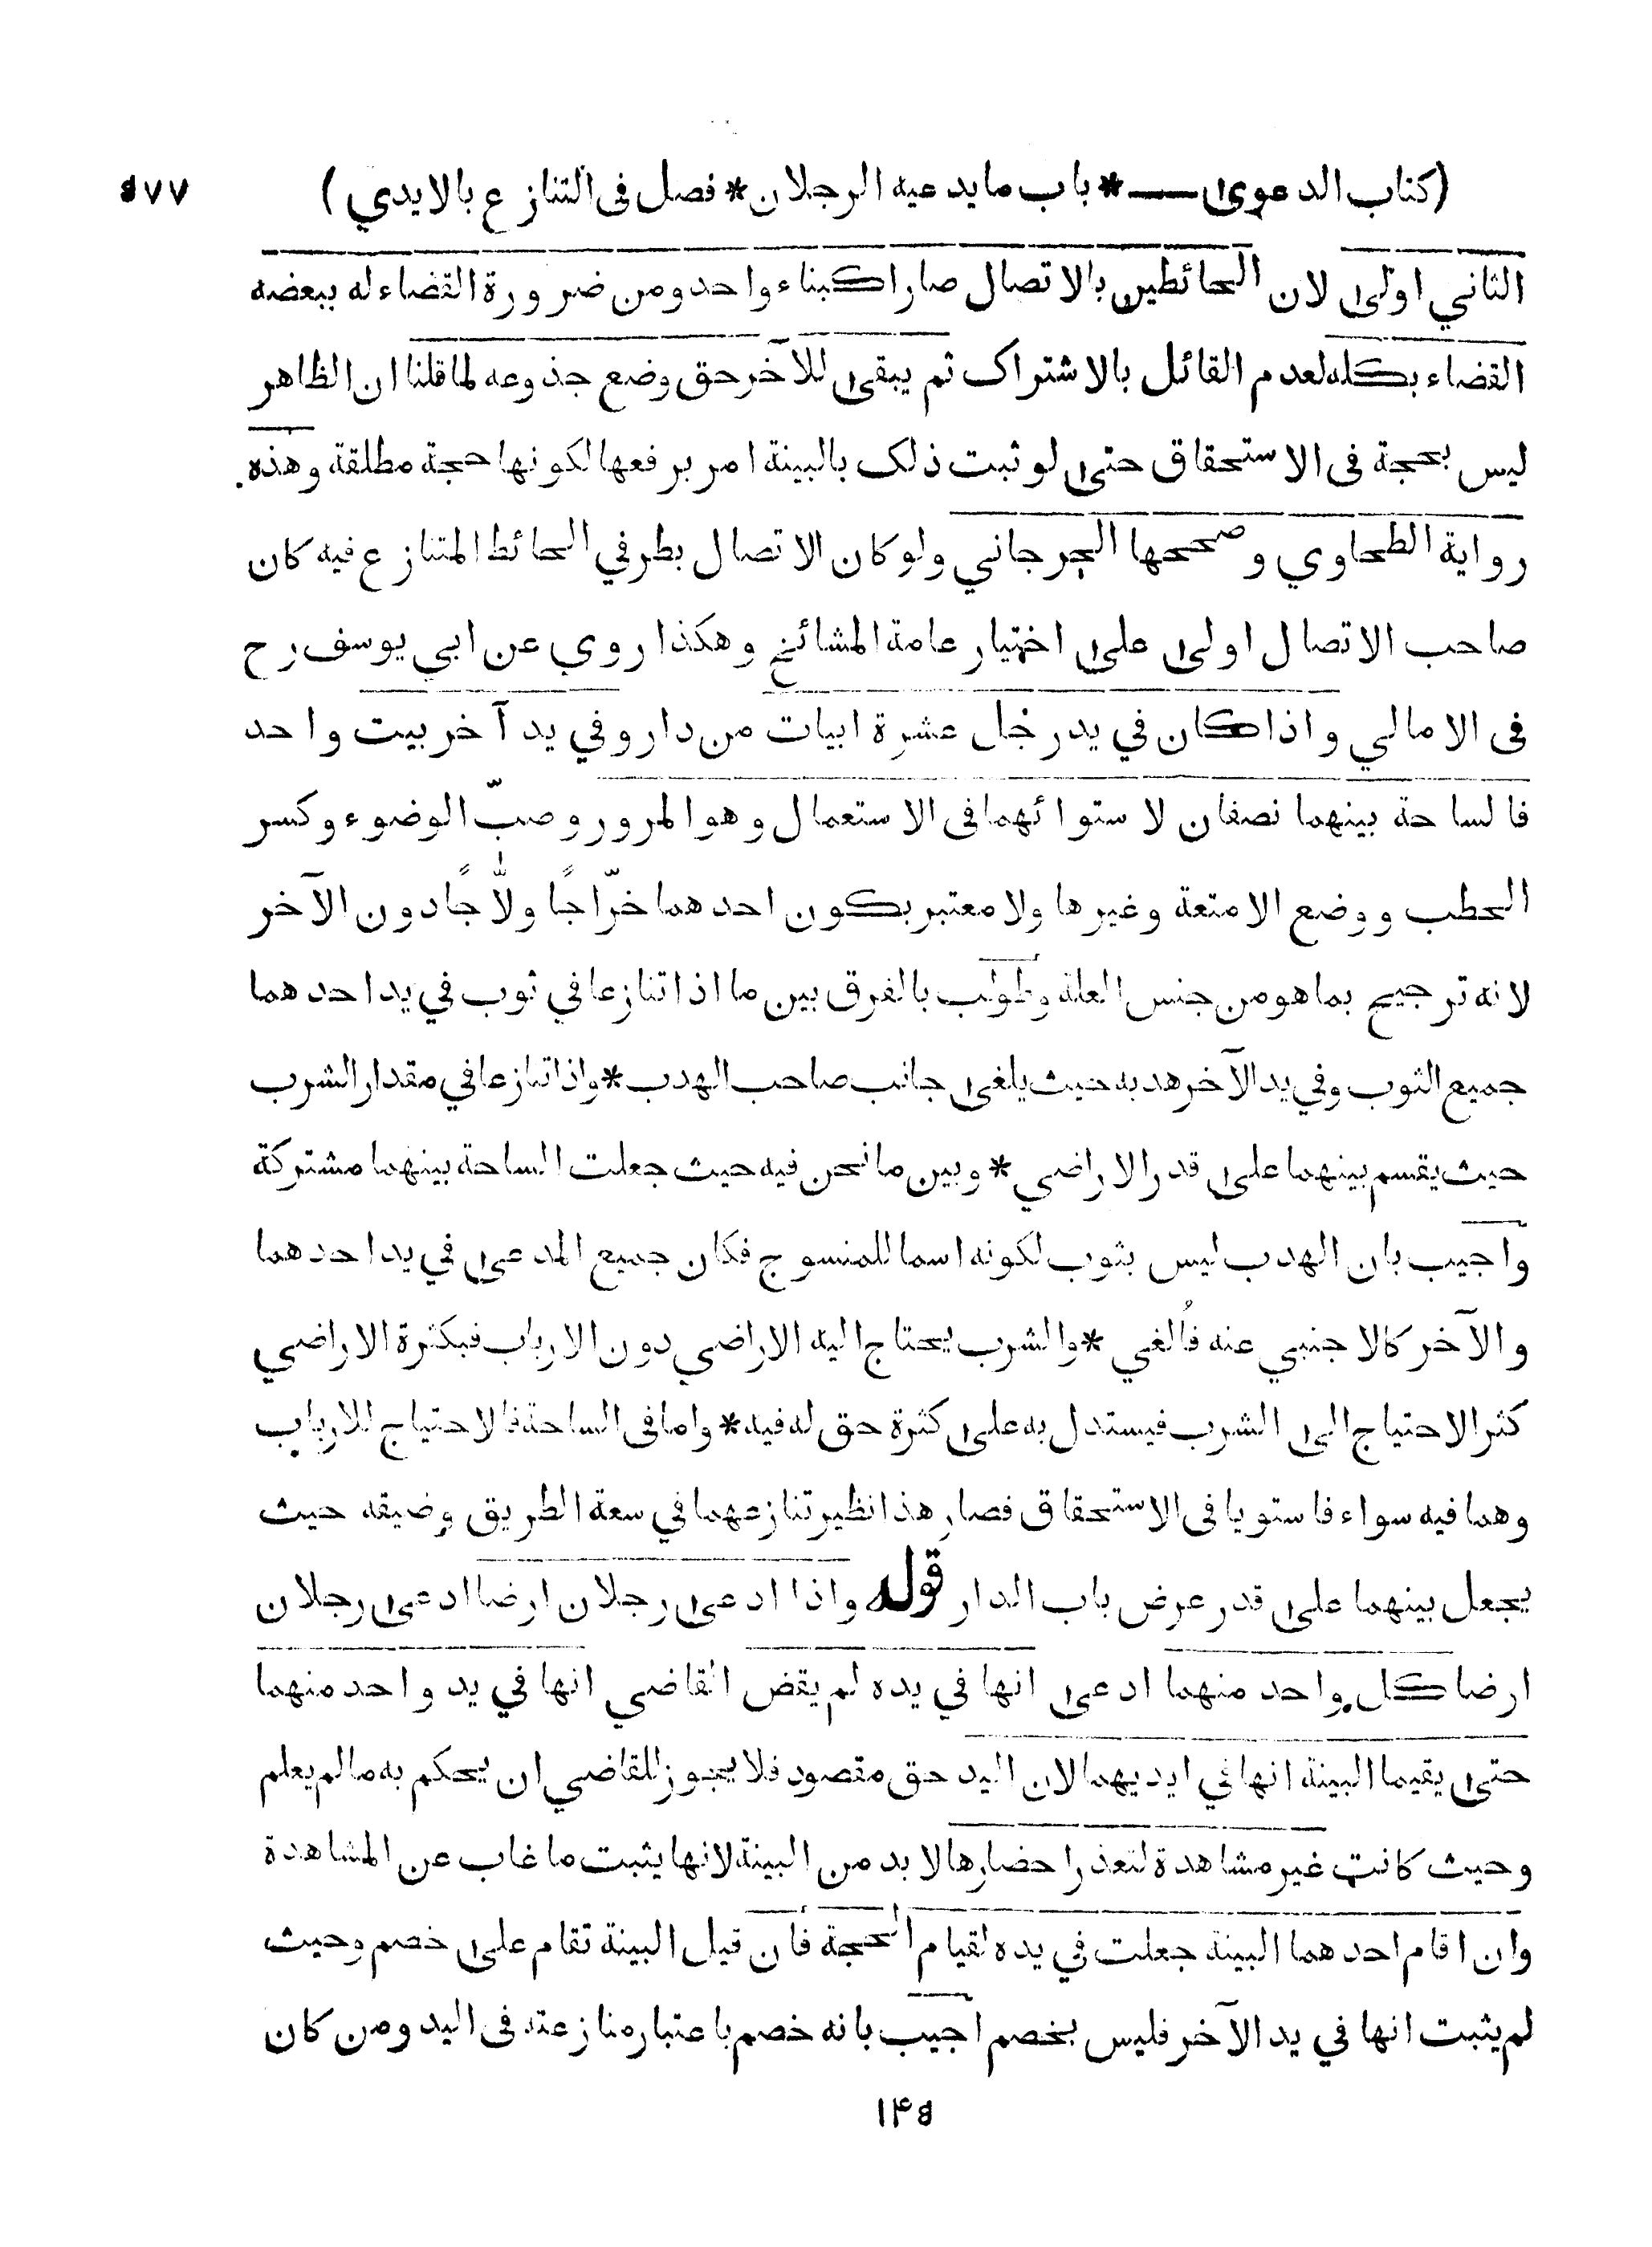 (كتاب الدعوى — * باب ما يدعيه الرجلان * فصل فى التنازع بالايدي) ٥٧٧
الثاني اولى لان الحائطين بالاتصال صارا كبناء واحد ومن ضرورة القضاء له ببعضه
القضاء بكله لعدم القائل بالاشتراك ثم يبقى للآخر حق وضع جذوعه لما قلنا ان الظاهر
ليس بحجة فى الاستحقاق حتى لو ثبت ذلك بالبينة امر برفعها لكونها حجة مطلقة وهذه
رواية الطحاوي وصححها الجرجاني ولو كان الاتصال بطرفي الحائط المتنازع فيه كان
صاحب الاتصال اولى على اختيار عامة المشائخ وهكذا روي عن ابي يوسف رح
فى الامالي واذا كان في يد رجل عشرة ابيات من دار وفي يد آخر بيت واحد
فالساحة بينهما نصفان لاستوائهما فى الاستعمال وهو المرور وصبّ الوضوء وكسر
الحطب ووضع الامتعة وغيرها ولا معتبر بكون احدهما خرّاجًا ولّاجًا دون الآخر
لانه ترجيح بما هو من جنس العلة وطولب بالفرق بين ما اذا تنازعا في ثوب في يد احدهما
جميع الثوب وفي يد الآخر هدبه حيث يلغى جانب صاحب الهدب * واذا تنازعا في مقدار الشرب
حيث يقسم بينهما على قدر الاراضي * وبين ما نحن فيه حيث جعلت الساحة بينهما مشتركة
واجيب بان الهدب ليس بثوب لكونه اسما للمنسوج فكان جميع المدعى في يد احدهما
والآخر كالاجنبي عنه فأُلغي * والشرب يحتاج اليه الاراضي دون الارباب فبكثرة الاراضي
كثر الاحتياج الى الشرب فيستدل به على كثرة حق له فيه * واما فى الساحة فالاحتياج للارباب
وهما فيه سواء فاستويا فى الاستحقاق فصار هذا نظير تنازعهما في سعة الطريق وضيقه حيث
يجعل بينهما على قدر عرض باب الدار قوله واذا ادعى رجلان ارضا ادعى رجلان
ارضا كل واحد منهما ادعى انها في يده لم يقض القاضي انها في يد واحد منهما
حتى يقيما البينة انها في ايديهما لان اليد حق مقصود فلا يجوز للقاضي ان يحكم به ما لم يعلم
وحيث كانت غير مشاهدة لتعذر احضارها لا بد من البينة لانها يثبت ما غاب عن المشاهدة
وان اقام احدهما البينة جعلت في يده لقيام الحجة فان قيل البينة تقام على خصم وحيث
لم يثبت انها في يد الآخر فليس بخصم اجيب بانه خصم باعتبار منازعته فى اليد ومن كان
١٤٥